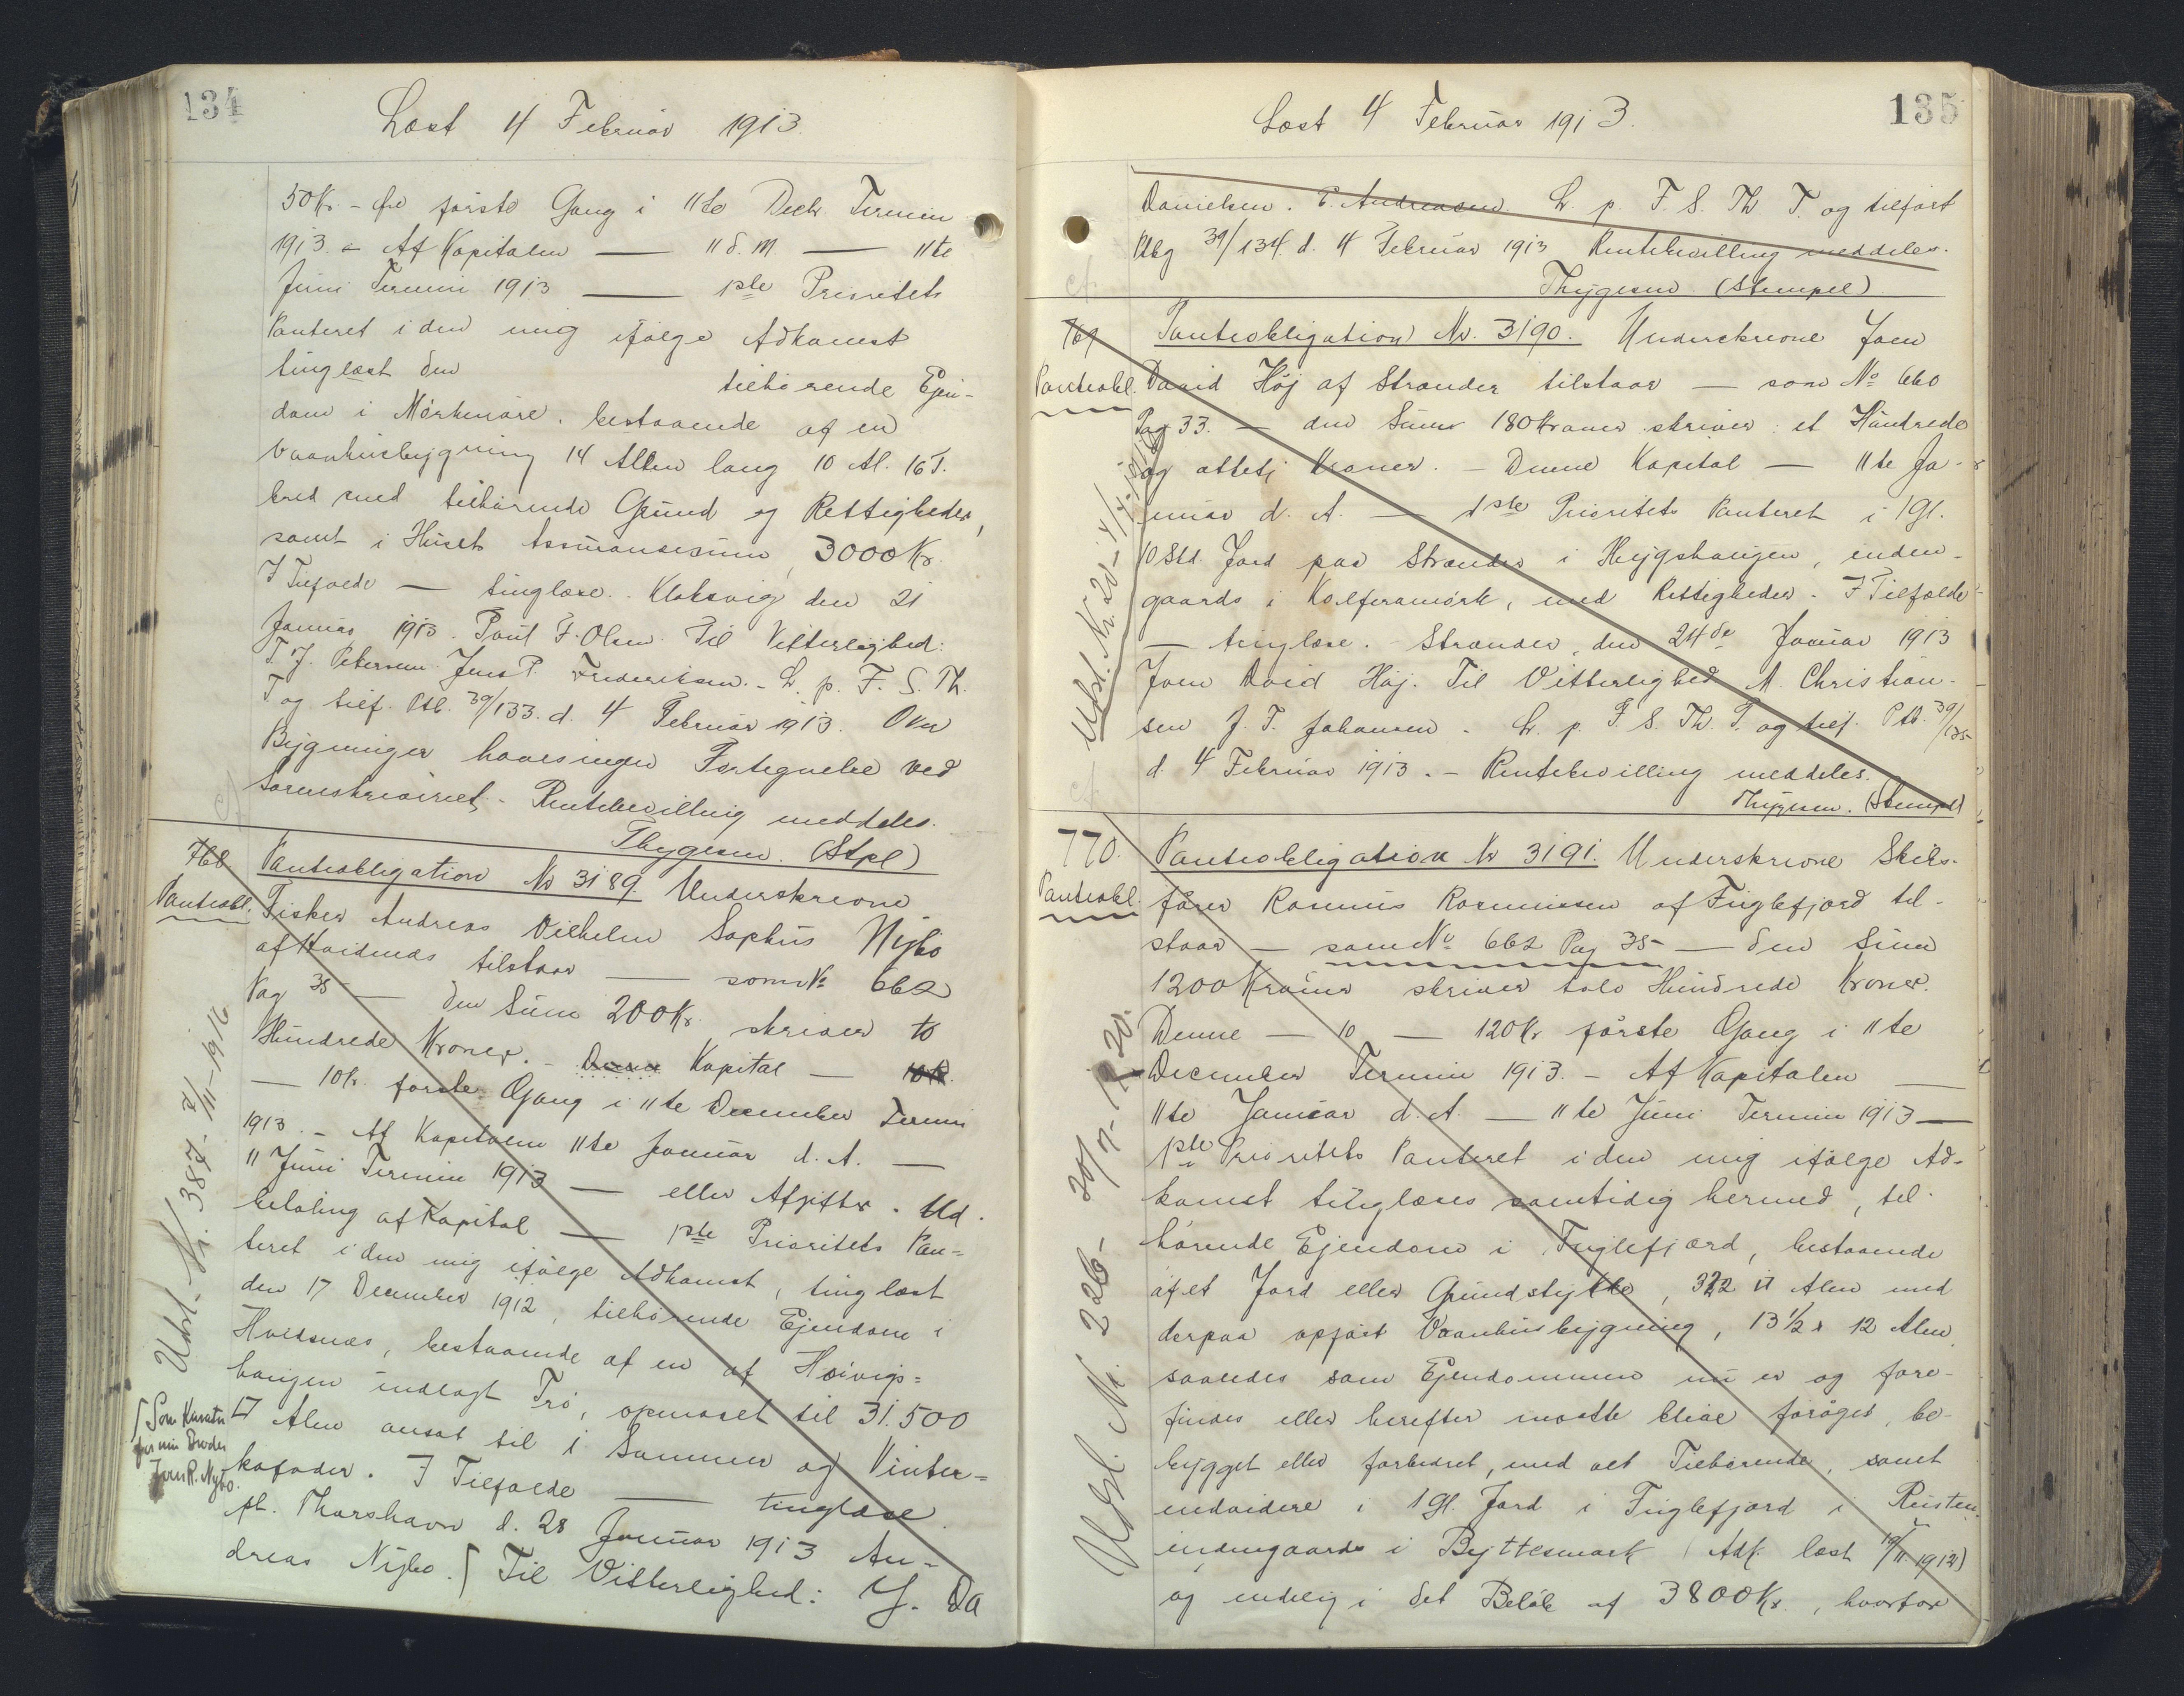 134
Læst 4 Februar 1913.
50 Kr. - Øre første Gang i 11te Decbr Termin
1913. - Af Kapitalen — 11 d. M. — 11te
Juni Termin 1913 — 1ste Prioritets
Panteret i den mig ifølge Adkomst
tinglæst den tilhørende Ejen-
dom i Mørkenøre, bestaaende af en
Vaanhusbygning 14 Allen lang 10 Al. 16 T.
bred med tilhørende Grund og Rettigheder,
samt i Husets Assurancesum, 3000 Kr.
I Tilfælde — tinglæse. Klaksvig den 21
Januar 1913. Poul F. Olsen. Til Vitterlighed:
T. J. Petersen Jens P. Frederiksen. - L. p. F. S. Th.
T og tilf. Ptb. 39/133. d. 4 Februar 1913. Over
Bygninger haves ingen Fortegnelse ved
Sorenskriveriet. - Rentebevilling meddeles.
Thygesen. (Stpl)
768
Panteobl.
Panteobligation No 3189. Underskrevne
Fisker Andreas Vilhelm Sophus Nybo
af Hvidenæs tilstaar — som No 662
Pag 35 — den Sum 200 Kr. skriver to
Hundrede Kroner. - Denne Kapital — 10 Kr.
— 10 Kr. første Gang i 11te December Termin
1913. - Af Kapitalen 11te Januar d. A. —
11 Juni Termin 1913 — eller Afgifter. Ud-
betaling af Kapital — 1ste Prioritets Pan-
teret i den mig ifølge Adkomst, tinglæst
den 17 December 1912, tilhørende Ejendom i
Hvidenæs, bestaaende af en af Hoivigs-
haugen indlagt Trø, opmaalt til 31.500
□ Alen ansat til 1 Sommer og Vinter-
kofoder. I Tilfælde — tinglæse.
pt. Thorshavn d. 28 Januar 1913 An-
dreas Nybo. ⌠ Til Vitterlighed: J. Da
Udsl. Nr. 387- 7/III-1916
⌠ Som Kurator
for min Broder
Joen R. Nybo.
135
Læst 4 Februar 1913.
Danielsen. P. Andreasen. L. p. F. S. Th T. og tilført
Ptbg 39/134. d. 4 Februar 1913 Rentebevilling meddeles.
Thygesen (Stempel)
769
Panteobl.
Panteobligation No. 3190. Underskrevne Joen
David Høj af Strænder tilstaar — som No 660
Pag 33. — den Sum 180 Kroner skriver: et Hundrede
og attetj Kroner. - Denne Kapital — 11te Ja-
nuar d. A. — 1ste Prioritets Panteret i 1 Gl.
10 Skd. Jord paa Strænder i Hejgshaugen, inden-
gaards i Kalferamørk, med Rettigheder. I Tilfælde
— tinglæse. Strænder, den 24de Januar 1913
Joen David Høj. Til Vitterlighed A. Christian-
sen J. F. Johansen. L. p. F. S. Th. T. og tilf. Ptb. 39/135
d. 4 Februar 1913. - Rentebevilling meddeles.
Thygesen. (Stempel)
770.
Panteobl.
Panteobligation No 3191. Underskrevne Skibs-
fører Rasmus Rasmussen af Fuglefjord til-
staar — som No 662 Pag 35 — den Sum
1200 Kroner skriver tolv Hundrede Kroner.
Denne — 10 — 120 Kr. første Gang i 11te
December Termin 1913. - Af Kapitalen —
11te Januar d. A. — 11te Juni Termin 1913 —
1ste Prioritets Panteret i den mig ifølge Ad-
komst tinglæses samtidig hermed, til-
hørende Ejendom i Fuglefjord, bestaaende
af et Jord eller Grundstykke, 322 □ Alen med
derpaa opført Vaanhusbygning, 13 1/2 x 12 Alen
saaledes som Ejendommen nu er og fore-
findes eller herefter maatte blive forøget, be-
bygget eller forbedret, med alt Tilhørende, samt
endvidere i 1 Gl. Jord i Fuglefjord i Rusten.
indengaards i Byttesmark (Adk. læst 19/11 1912)
og endelig i det Beløb af 3800 Kr., hvorfor
Udsl. Nr. 226-